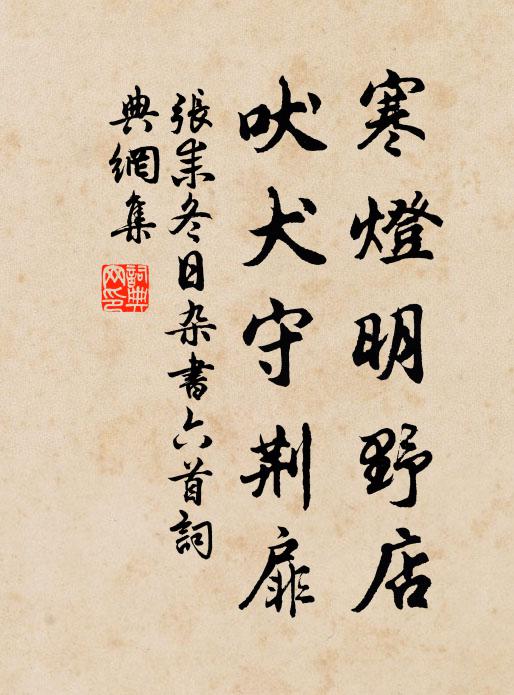 寒燈明野店
吠犬守荆扉
張耒冬日杂書六首詞
典網集
詞典
网印